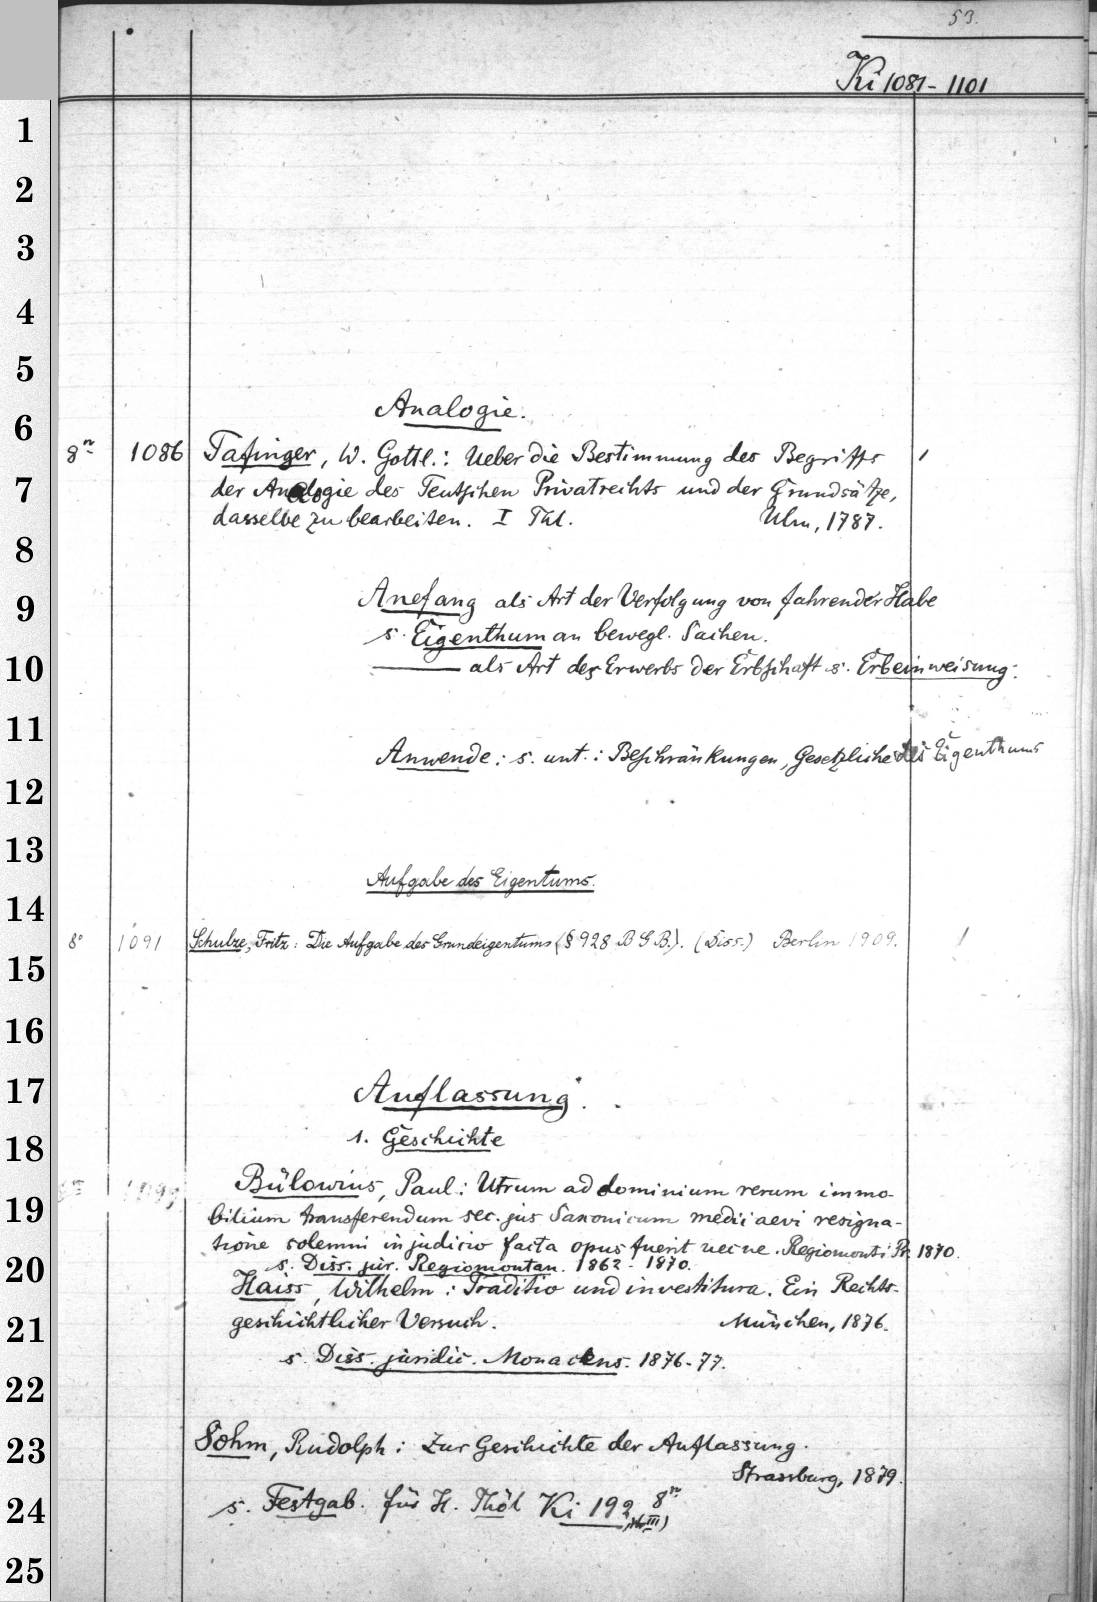 53.
Ki 1081-1101
1
2
3
4
5
6
7
8
9
10
11
12
13
14
15
16
17
18
19
20
21
22
23
24
25
Analogie.
8° 1086 Tafinger, W. Gottl.: Ueber die Bestimmung des Begriffs 1
der Analogie des Teutschen Privatrechts und der Grundsätze,
dasselbe zu bearbeiten. I Thl. Ulm, 1787.
Anefang als Art der Verfolgung von fahrender Habe
s. Eigenthum an bewegl. Sachen.
als Art des Erwerbs der Erbschaft s. Erbeinweisung.
Anwende: s. unt.: Beschränkungen, Gesetzliche des Eigenthums
Aufgabe des Eigentums.
8° 1091 Schulze, Fritz: Die Aufgabe des Grundeigentums (§ 928 B G B.). (Diss.) Berlin 1909. 1
Auflassung.
1. Geschichte
Bülowius, Paul: Utrum ad dominium rerum immo-
bilium transferendum sec. jus Saxonicum medii aevi resigna-
tione solemni in judicio facta opus fuerit necne. Regiomonti Pr. 1870.
s. Diss. jur. Regiomontan. 1862-1870.
Haiss, Wilhelm: Traditio und investitura. Ein Rechts-
geschichtlicher Versuch. München, 1876.
s. Diss. juridic. Monacens. 1876-77.
Sohm, Rudolph: Zur Geschichte der Auflassung.
Strassburg, 1879.
s. Festgab. für H. Thöl Ki 192 8°